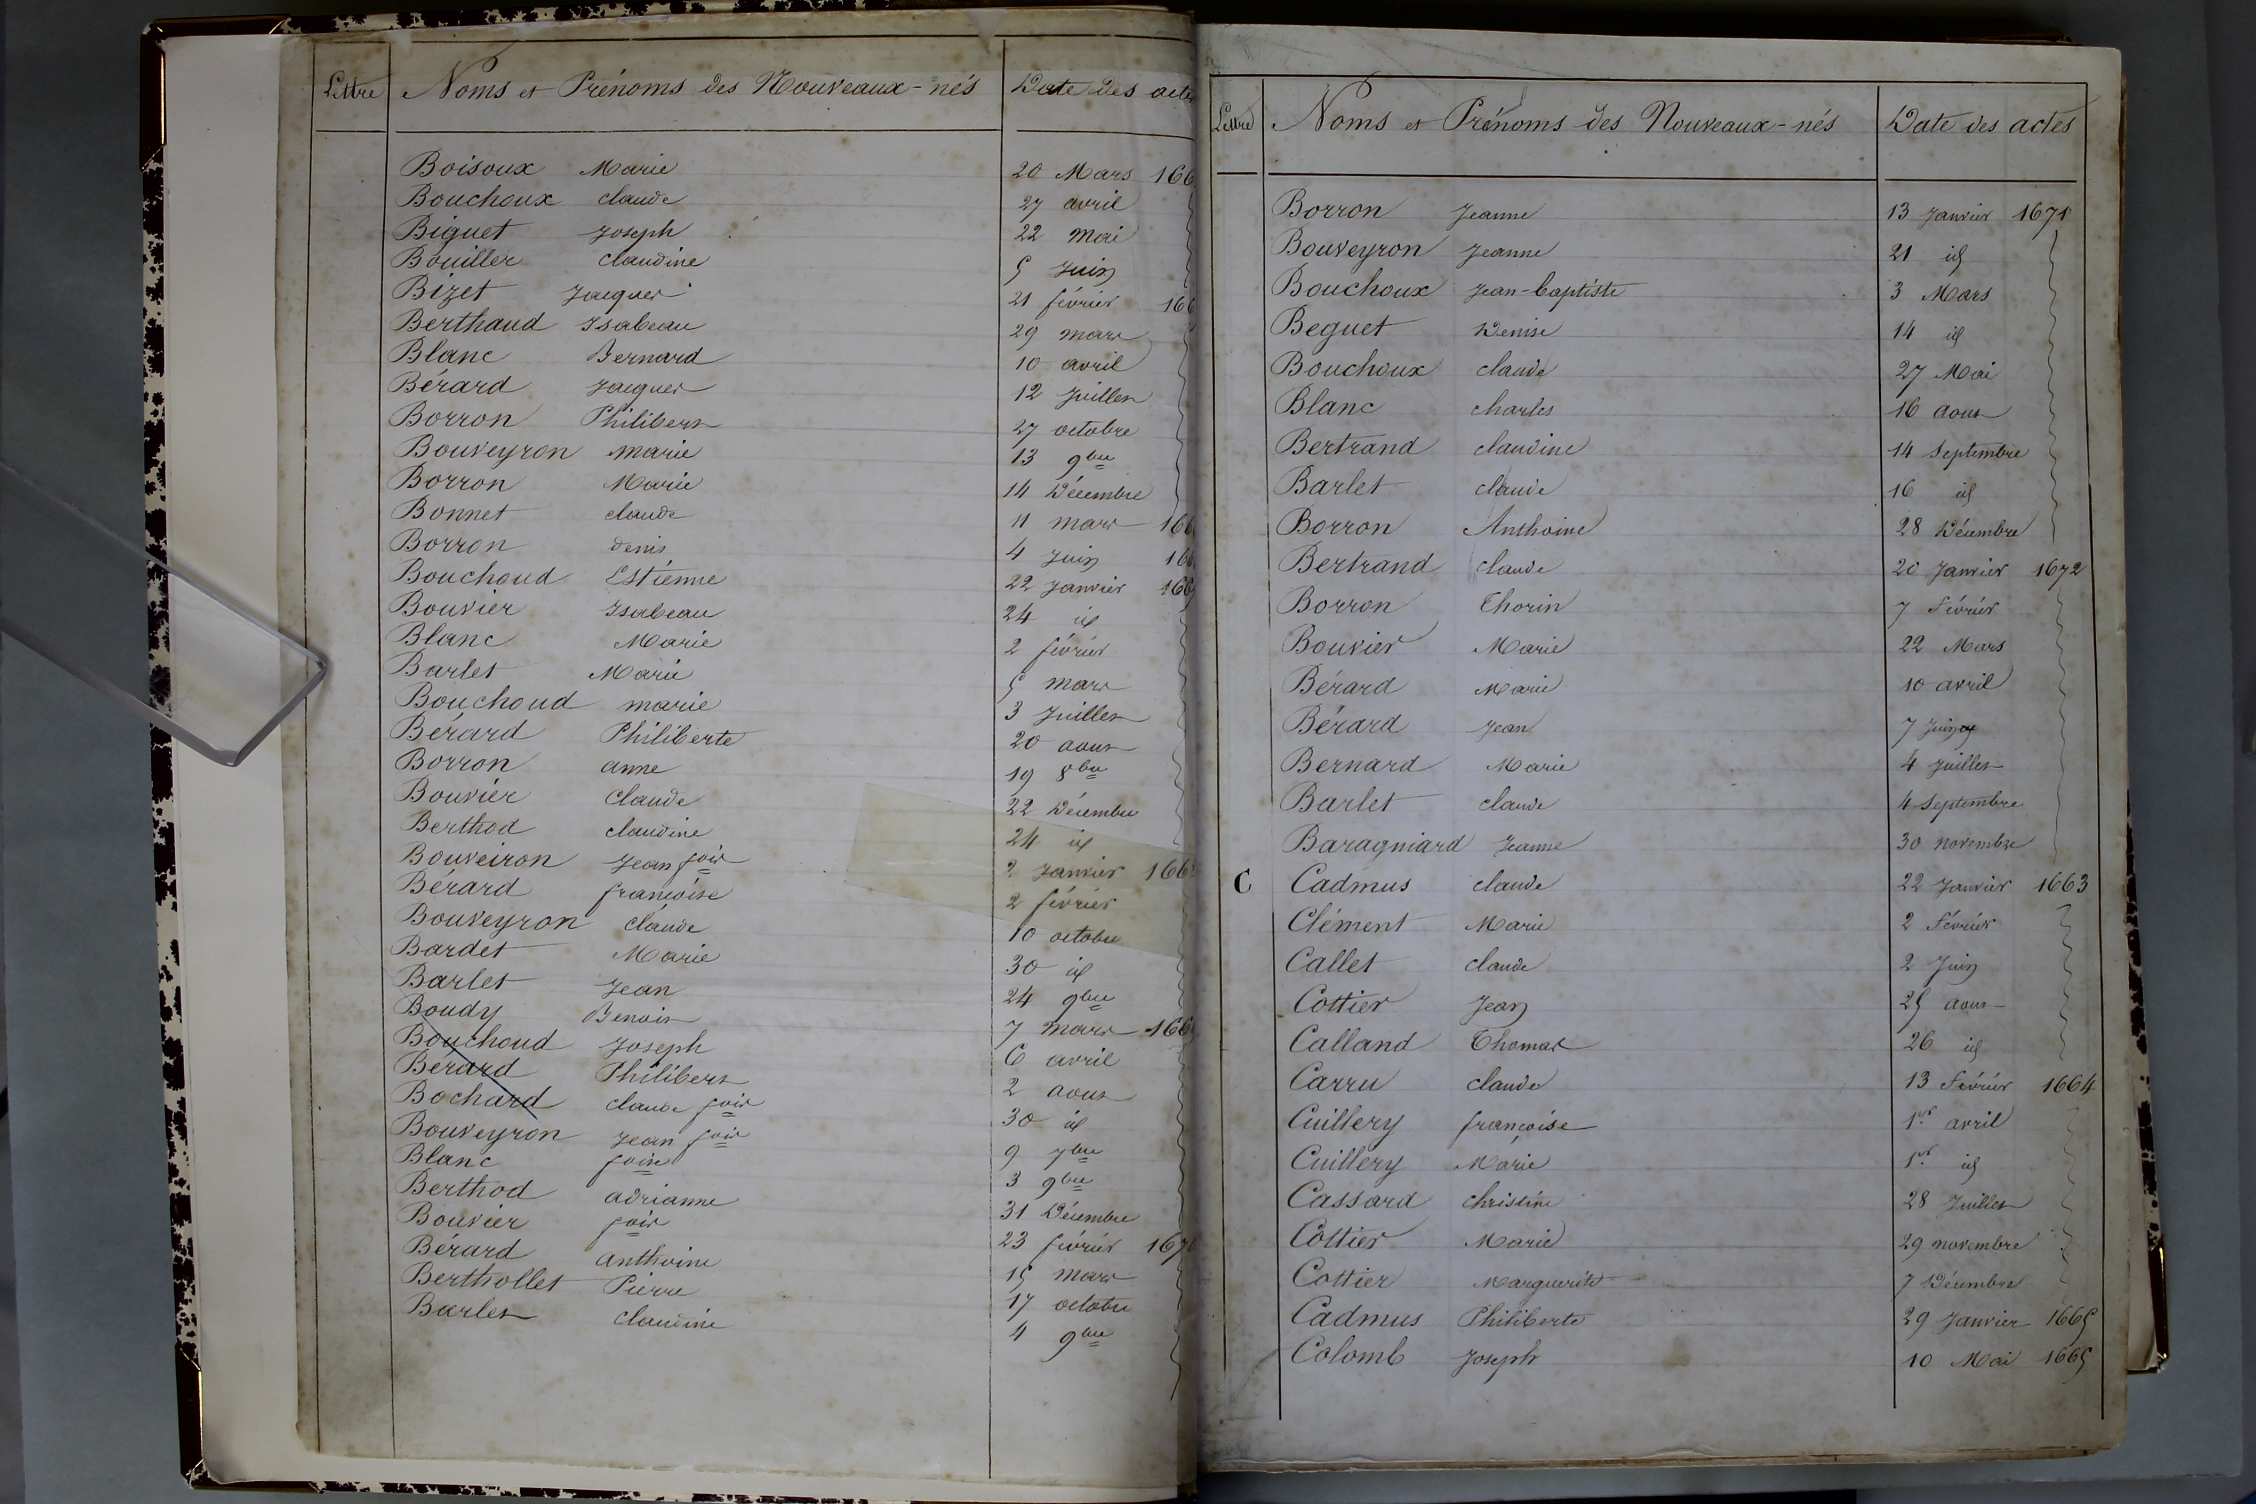 Lettre Noms et Prénoms des Nouveaux-nés Date des actes
Boisoux Marie 20 Mars 166
Bouchoux claude 27 avril
Biguet Joseph 22 Mai
Bouiller claudine 5 Juin
Bizet Jacques 21 février 166
Berthaud Isabeau 29 mars
Blanc Bernard 10 avril
Bérard Jacques 12 Juillet
Borron Philibert 27 octobre
Bouveyron marie 13 9bre
Borron Marie 14 Décembre
Bonnet claude 11 mars 166
Borron denis 4 Juin 166
Bouchoud Estienne 22 Janvier 166
Bouvier Isabeau 24 id
Blanc Marie 2 février
Barlet Marie 5 mars
Bouchoud marie 3 Juillet
Bérard Philiberte 20 aout
Borron anne 19 8bre
Bouvier Claude 22 Décembre
Berthod claudine 24 id
Bouveiron Jean fois 2 Janvier 166
Bérard françoise 2 février
Bouveyron claude 10 octobre
Bardet Marie 30 id
Barlet Jean 24 9bre
Boudy Benoit 7 mars 166
Bouchoud Joseph 6 avril
Bérard Philibert 2 aout
Bochard claude fois 30 id
Bouveyron Jean fois 9 7bre
Blanc foise 3 9bre
Berthod adrianne 31 Décembre
Bouvier fois 23 février 167
Bérard anthoine 15 mars
Berthollet Pierre 17 octobre
Barlet claudine 4 9bre
Lettre Noms et Prénoms des Nouveaux-nés Date des actes
Borron Jeanne 13 Janvier 1671
Bouveyron Jeanne 21 id
Bouchoux Jean-baptiste 3 Mars
Beguet Denise 14 id
Bouchoux claude 27 Mai
Blanc charles 16 aout
Bertrand claudine 14 Septembre
Barlet claude 16 id
Borron Anthoine 28 Décembre
Bertrand claude 20 Janvier 1672
Borron Thorin 7 Février
Bouvier Marie 22 Mars
Bérard Marie 10 avril
Bérard Jean 7 Juin
Bernard Marie 4 Juillet
Barlet claude 4 Septembre
Baragniard Jeanne 30 novembre
C Cadmus claude 22 Janvier 1663
Clément Marie 2 Février
Callet claude 2 Juin
Cottier Jean 25 aout
Calland Thomas 26 id
Carru claude 13 Février 1664
Cuillery françoise 1er avril
Cuillery Marie 1er id
Cassard christine 28 Juillet
Cottier Marie 29 novembre
Cottier Marguerite 7 Décembre
Cadmus Philiberte 29 Janvier 1665
Colomb Joseph 10 Mai 1665